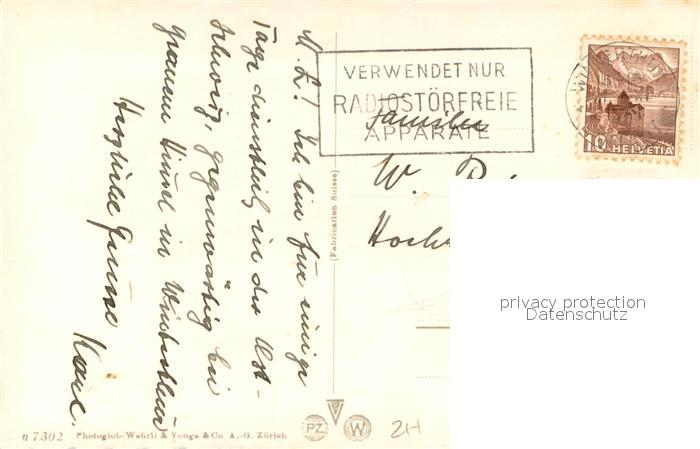 M. L.! Ich bin für einige
Tage dienstlich in der Ost-
schweiz, gegenwärtig bei
grauem Himmel in Winterthur
Herzliche Grüsse
Karl.
VERWENDET NUR
RADIOSTÖRFREIE
APPARATE
Familie
W.
WINTERTHUR
10 HELVETIA
(Fabrication Suisse)
privacy protection
Datenschutz
n 7302 Photoglob-Wehrli & Vouga & Co A.-G. Zürich
PZ
W
2H